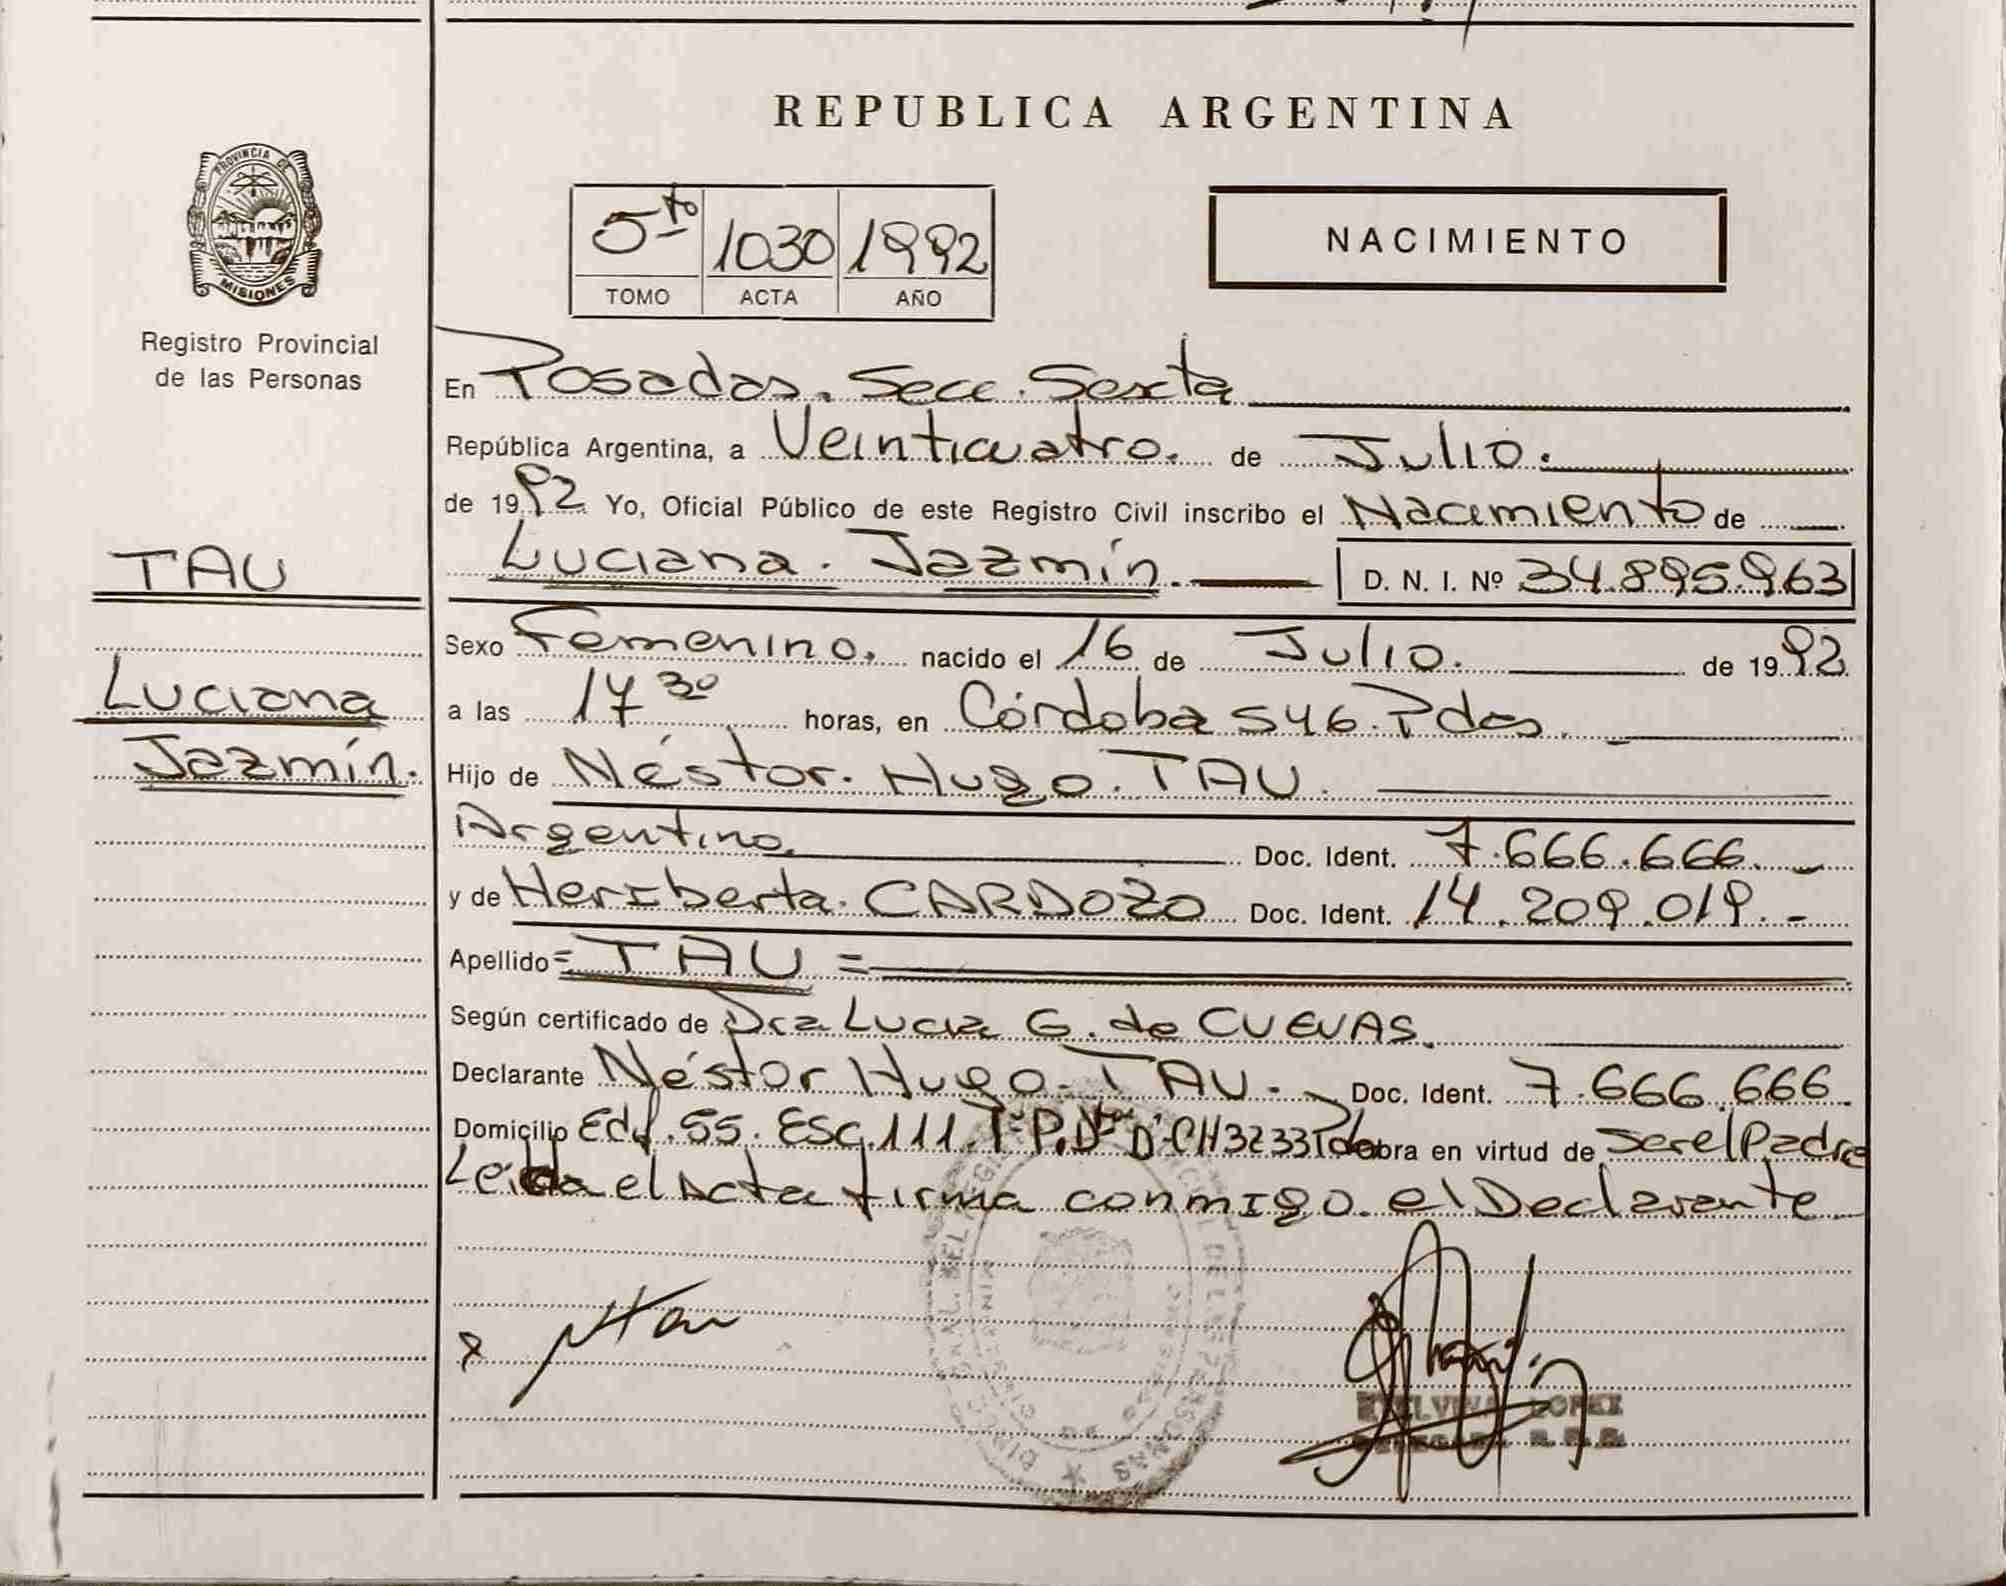 REPUBLICA ARGENTINA
PROVINCIA DE
MISIONES
Registro Provincial
de las Personas
5to 1030 1992
TOMO ACTA AÑO
NACIMIENTO
En Posadas. Secc. Sexta
República Argentina, a Veinticuatro. de Julio.
de 1992 Yo, Oficial Público de este Registro Civil inscribo el Nacimiento de
Luciana. Jazmín. D. N. I. Nº 34.895.963
TAU
Luciana
Jazmín.
Sexo Femenino. nacido el 16 de Julio. de 1992
a las 17 30 horas, en Córdoba 546. Pdas.
Hijo de Néstor. Hugo. TAU.
Argentino. Doc. Ident. 7.666.666.
y de Heriberta. CARDOZO Doc. Ident. 14.209.019.
Apellido = TAU =
Según certificado de Dra Lucia G. de CUEVAS.
Declarante Néstor Hugo. TAU. Doc. Ident. 7.666.666.
Domicilio Edf. 55. Esc. 111. CH 32 33 Pdas obra en virtud de ser el Padre
Leída el acta firma conmigo. el Declarante
x NTau
LOPEZ